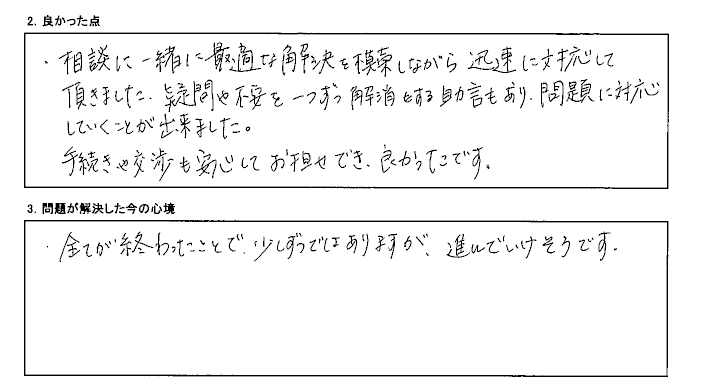 2. 良かった点
・相談に一緒に最適な解決を模索しながら迅速に対応して
頂きました。疑問や不安を一つずつ解消する助言もあり、問題に対応
していくことが出来ました。
手続きや交渉も安心してお任せでき、良かったです。
3. 問題が解決した今の心境
・全てが終わったことで、少しずつではありますが、進んでいけそうです。